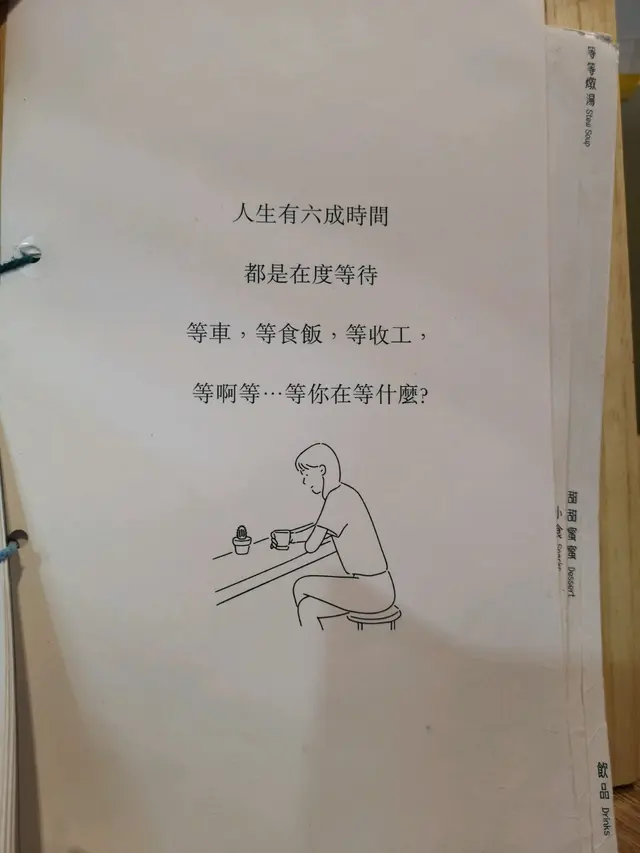 人生有六成時間
都是在度等待
等車，等食飯，等收工，
等啊等…等你在等什麼?
等等燉湯 Stew Soup
甜甜蜜蜜 Dessert
飲品 Drinks